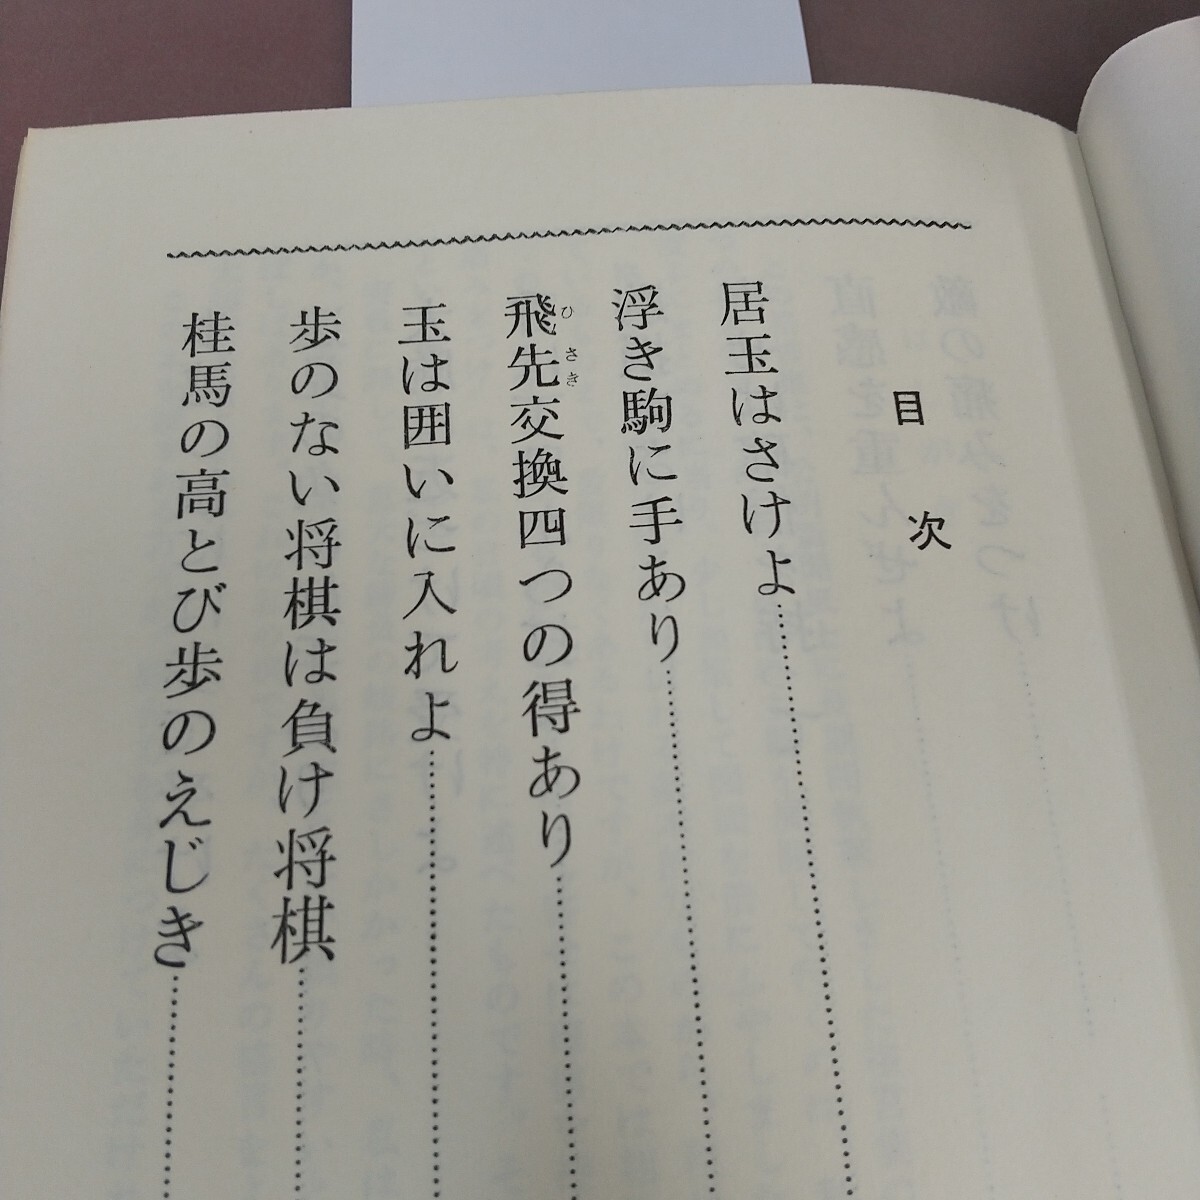 目次
居玉はさけよ
浮き駒に手あり
飛先交換四つの得あり
ひさき
玉は囲いに入れよ
歩のない将棋は負け将棋
桂馬の高とび歩のえじき